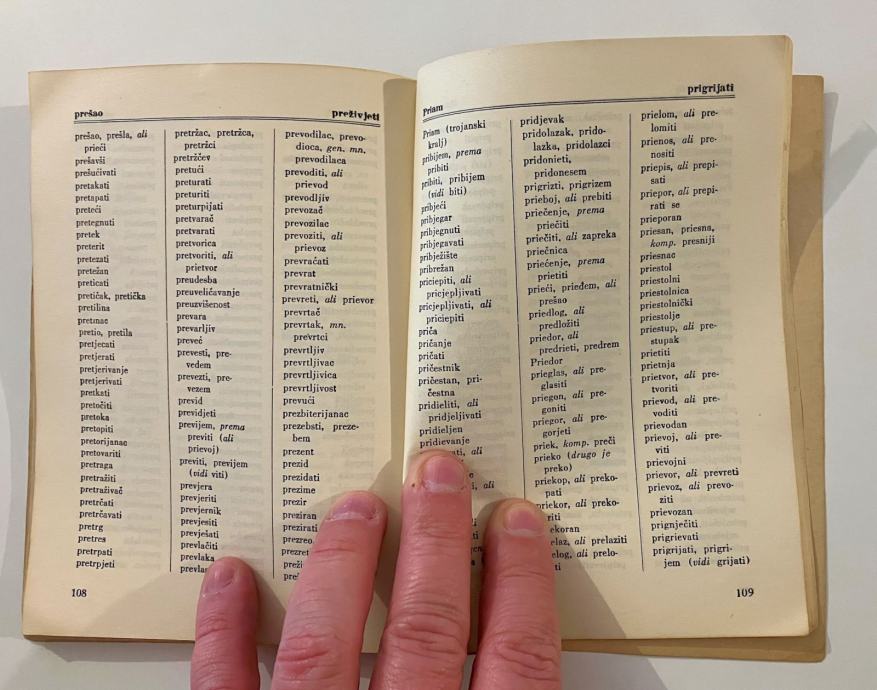 prešao
preživjeti
prešao, prešla, ali
prieći
prešavši
prešućivati
pretakati
pretapati
preteći
pretegnuti
pretek
preterit
pretezati
pretežan
preticati
pretičak, pretička
pretilina
pretinac
pretio, pretila
pretjecati
pretjerati
pretjerivanje
pretjerivati
pretkati
pretočiti
pretoka
pretopiti
pretorijanac
pretovariti
pretraga
pretražiti
pretraživač
pretrčati
pretrčavati
pretrg
pretres
pretrpati
pretrpjeti
pretržac, pretržca,
pretržci
pretržčev
pretući
preturati
preturiti
preturpijati
pretvarač
pretvarati
pretvorica
pretvoriti, ali
prietvor
preudesba
preuveličavanje
preuzvišenost
prevara
prevarljiv
preveć
prevesti, pre-
vedem
prevezti, pre-
vezem
previd
previdjeti
previjem, prema
previti (ali
prievoj)
previti, previjem
(vidi viti)
prevjera
prevjeriti
prevjernik
prevjesiti
prevješati
prevlačiti
prevlaka
prevodilac, prevo-
dioca, gen. mn.
prevodilaca
prevoditi, ali
prievod
prevodljiv
prevozač
prevozilac
prevoziti, ali
prievoz
prevraćati
prevrat
prevratnički
prevreti, ali prievor
prevrtač
prevrtak, mn.
prevrtci
prevrtljiv
prevrtljivac
prevrtljivica
prevrtljivost
prevući
prezbiterijanac
prezebsti, preze-
bem
prezent
prezid
prezidati
prezime
prezir
preziran
prezirati
108
Priam
prigrijati
Priam (trojanski
kralj)
pribijem, prema
pribiti
pribiti, pribijem
(vidi biti)
pribjeći
pribjegar
pribjegnuti
pribjegavati
pribježište
pribrežan
priciepiti, ali
pricjepljivati
pricjepljivati, ali
priciepiti
priča
pričanje
pričati
pričestnik
pričestan, pri-
čestna
pridieliti, ali
pridjeljivati
pridieljen
pridievanje
ali
pridjevak
pridolazak, prido-
lazka, pridolazci
pridonieti,
pridonesem
prigrizti, prigrizem
prieboj, ali prebiti
priečenje, prema
priečiti
priečiti, ali zapreka
priečnica
priećenje, prema
prietiti
prieći, prieđem, ali
prešao
priedlog, ali
predložiti
priedor, ali
predrieti, predrem
Priedor
prieglas, ali pre-
glasiti
priegon, ali pre-
goniti
priegor, ali pre-
gorjeti
priek, komp. preči
prieko (drugo je
preko)
priekop, ali preko-
pati
ali preko-
ali prelaziti
ali prelo-
prielom, ali pre-
lomiti
prienos, ali pre-
nositi
priepis, ali prepi-
sati
priepor, ali prepi-
rati se
prieporan
priesan, priesna,
komp. presniji
priesnac
priestol
priestolni
priestolnica
priestolnički
priestolje
priestup, ali pre-
stupak
prietiti
prietnja
prietvor, ali pre-
tvoriti
prievod, ali pre-
voditi
prievodan
prievoj, ali pre-
viti
prievojni
prievor, ali prevreti
prievoz, ali prevo-
ziti
prievozan
prignječiti
prigrievati
prigrijati, prigri-
jem (vidi grijati)
109